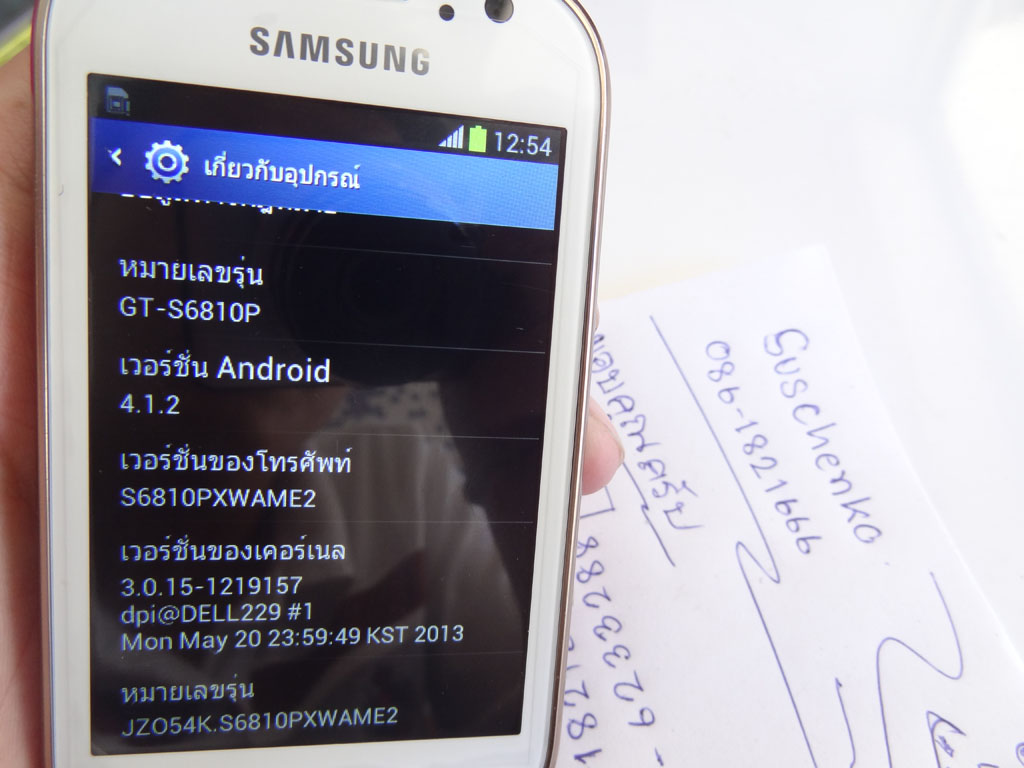 SAMSUNG
12:54
เกี่ยวกับอุปกรณ์
หมายเลขรุ่น
GT-S6810P
เวอร์ชั่น Android
4.1.2
เวอร์ชั่นของโทรศัพท์
S6810PXWAME2
เวอร์ชั่นของเคอร์เนล
3.0.15-1219157
dpi@DELL229 #1
Mon May 20 23:59:49 KST 2013
หมายเลขรุ่น
JZO54K.S6810PXWAME2
Guschenko
086-1821666
ขอบคุณครับ